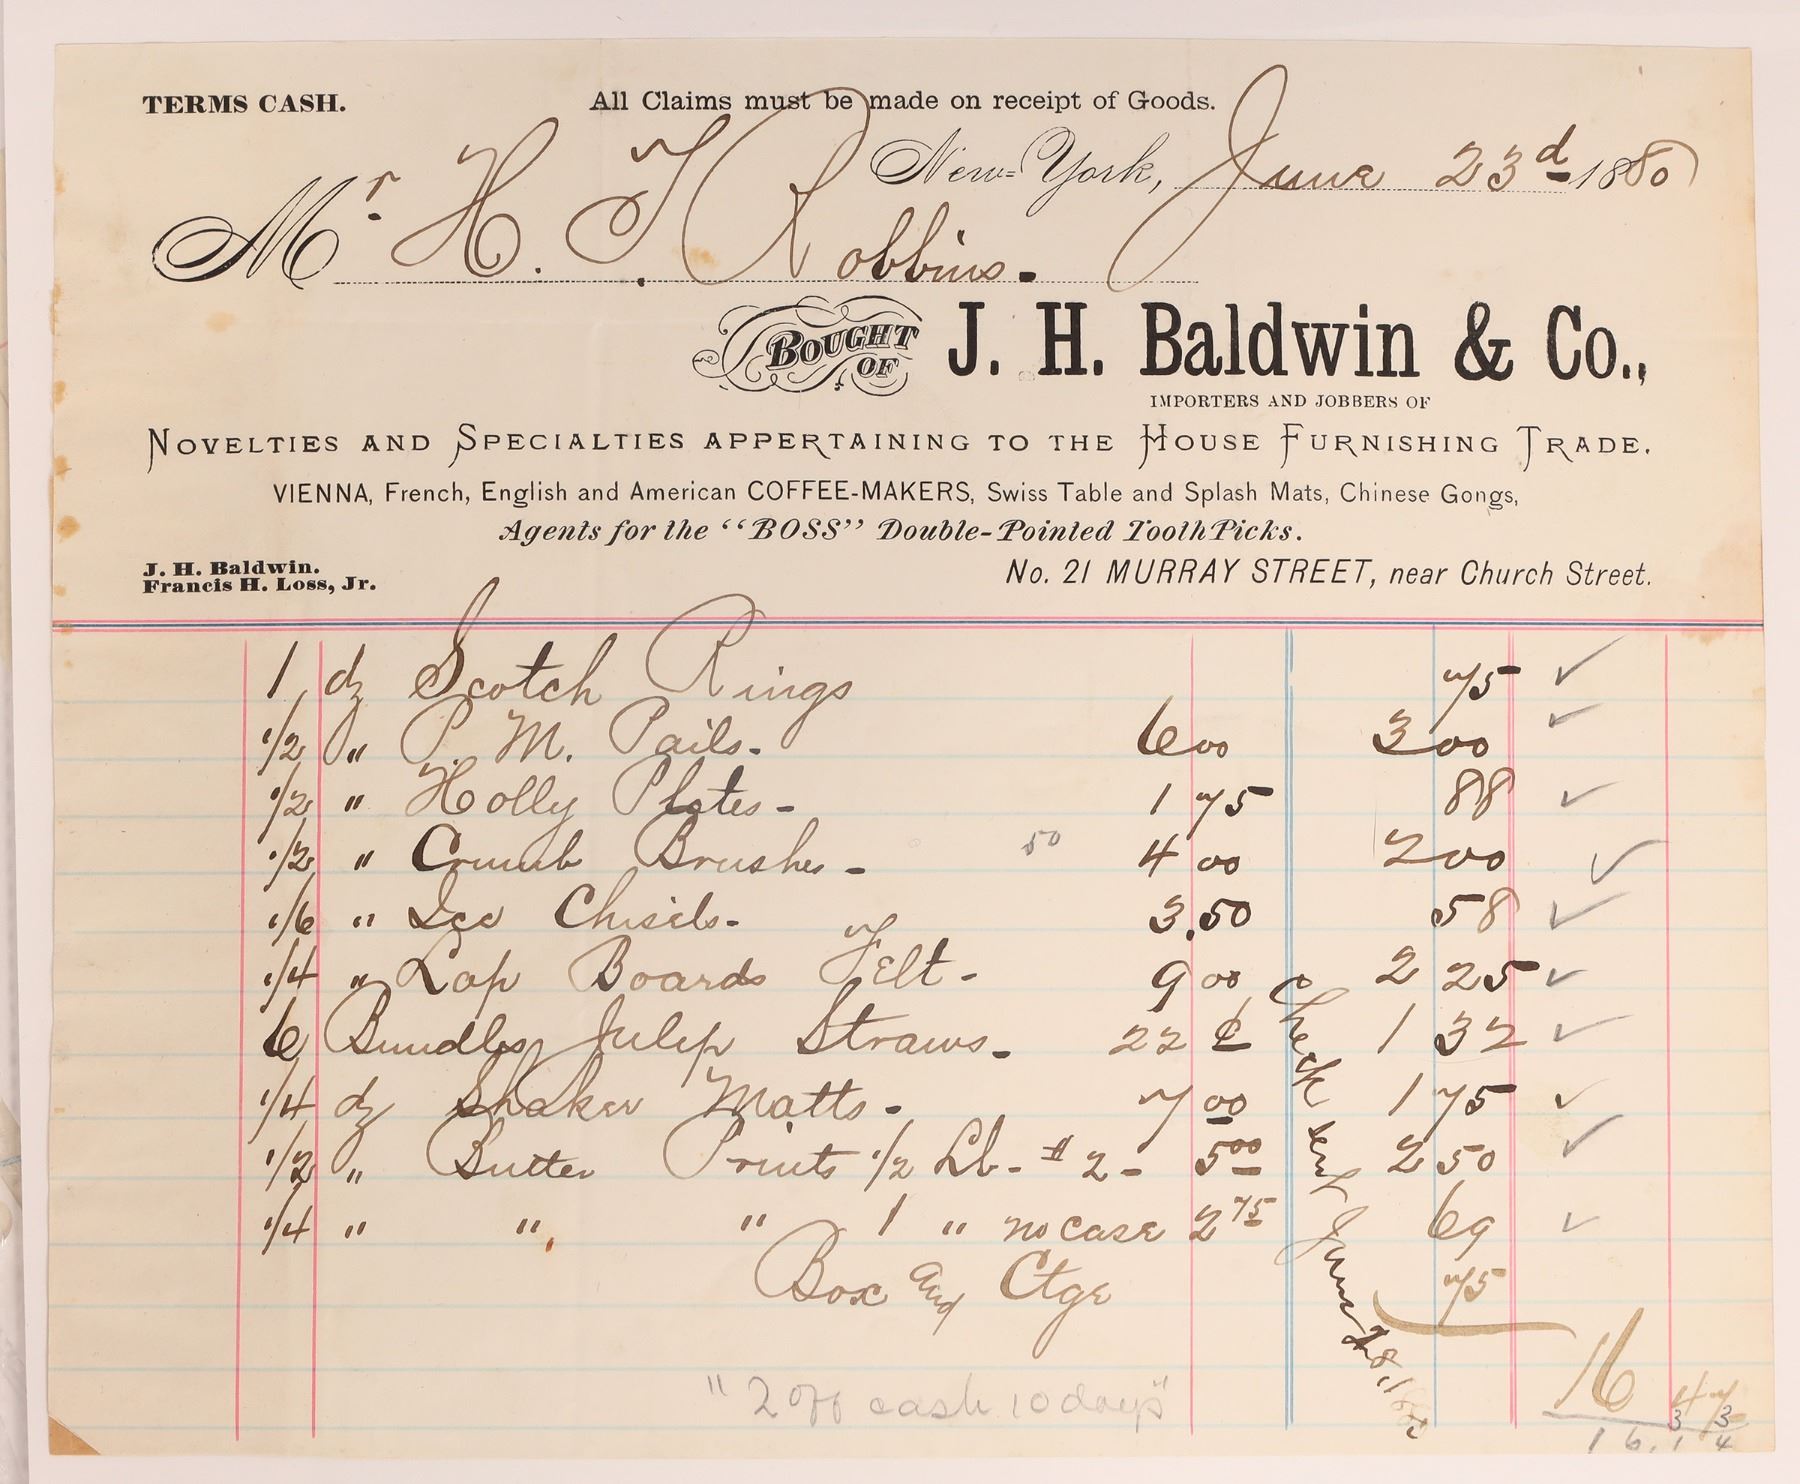 TERMS CASH.
All Claims must be made on receipt of Goods.
New-York, June 23d 1880
Mr. H. T. Robbins.
BOUGHT OF J. H. Baldwin & Co.,
IMPORTERS AND JOBBERS OF
NOVELTIES AND SPECIALTIES APPERTAINING TO THE HOUSE FURNISHING TRADE.
VIENNA, French, English and American COFFEE-MAKERS, Swiss Table and Splash Mats, Chinese Gongs,
Agents for the "BOSS" Double-Pointed Tooth Picks.
J. H. Baldwin.
Francis H. Loss, Jr.
No. 21 MURRAY STREET, near Church Street.
1 dz Scotch Rings 75 ✓
1/2 " P. M. Pails- 6 00 3 00 ✓
1/2 " Holly Plates- 1 75 88 ✓
1/2 " Crumb Brushes- 50 4 00 2 00 ✓
1/6 " Ice Chisels- 3.50 58 ✓
1/4 " Lap Boards Felt- 9 00 2 25 ✓
6 Bundles Julep Straws- 22 ¢ 1 32 ✓
1/4 dz Shaker Matts- 7 00 1 75 ✓
1/2 " Butter Prints 1/2 Lb- # 2- 5 00 2 50 ✓
1/4 " " " 1 " no case 2 75 69 ✓
Box and Ctge 75
Check sent June 28, 1880
16 47
33
"2 off cash 10 days"
16.14